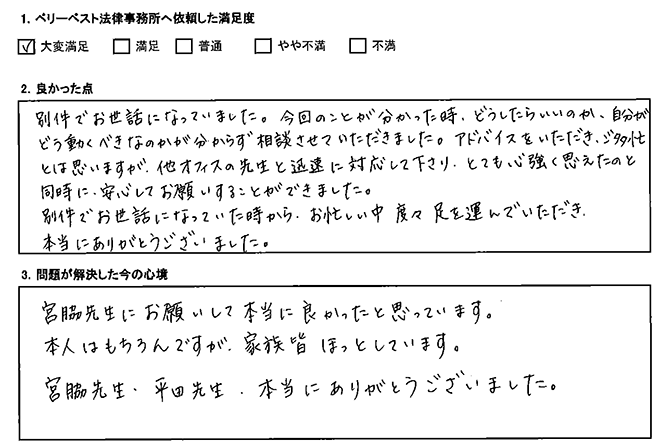 1. ベリーベスト法律事務所へ依頼した満足度
☑ 大変満足 □ 満足 □ 普通 □ やや不満 □ 不満
2. 良かった点
別件でお世話になっていました。今回のことが分かった時、どうしたらいいのか、自分が
どう動くべきなのかが分からず相談させていただきました。アドバイスをいただき、ご多忙
とは思いますが、他オフィスの先生と迅速に対応して下さり、とても心強く思えたのと
同時に、安心してお願いすることができました。
別件でお世話になっていた時から、お忙しい中 度々 足を運んでいただき、
本当にありがとうございました。
3. 問題が解決した今の心境
宮脇先生にお願いして本当に良かったと思っています。
本人はもちろんですが、家族皆 ほっとしています。
宮脇先生・平田先生、本当にありがとうございました。